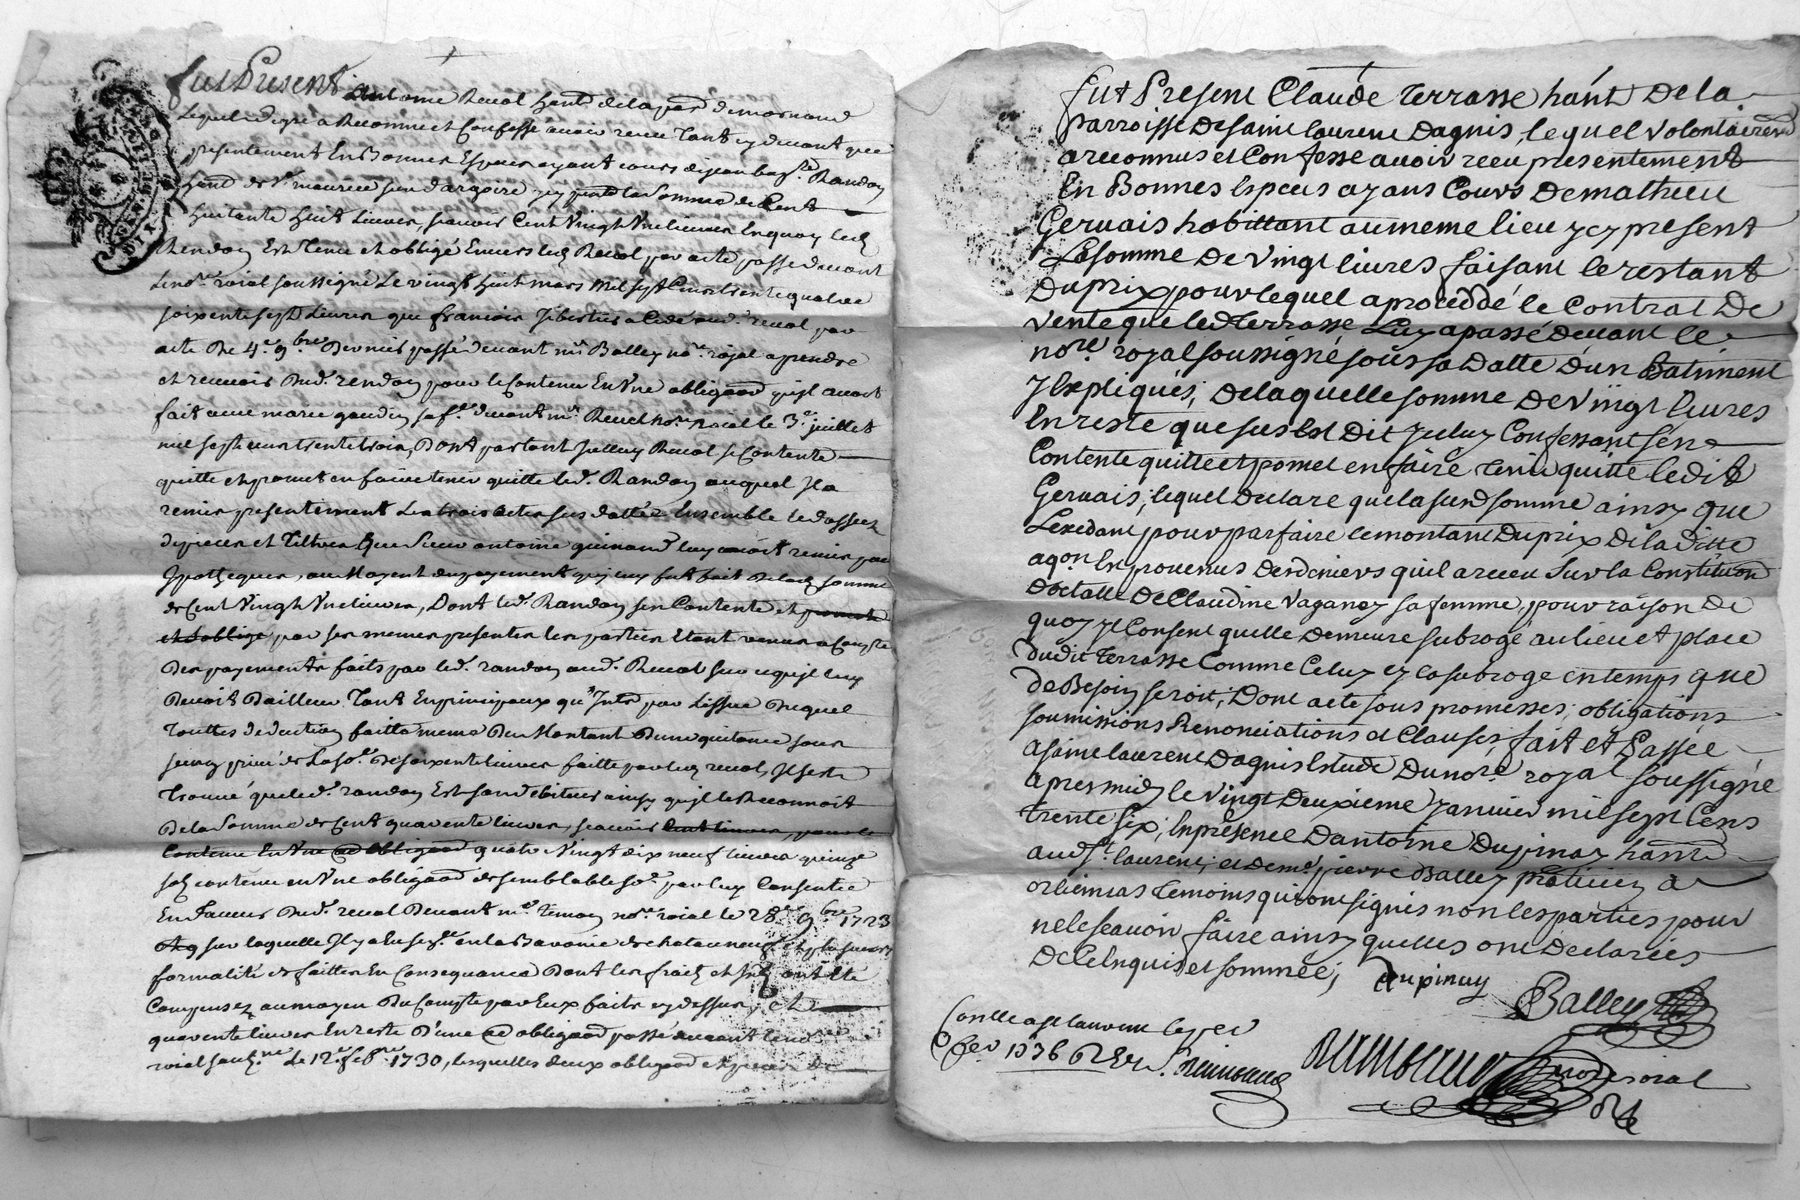 fut Present Antoine Reuol hant de la par de mornand
lequel de gre a Reconnu et Confessé auoir receu tant cy deuant que
presentement En Bonnes Especes ayant cours de jean bap.te Randon
hant de St maurice sur dargoire icy pnt la Somme de Cent
huitante huit Liures, scauoir Cent Vingt Vne liures En quoy led
Rendon Est Tenu et obligé Enuers led Reuol par acte passé deuant
le no.re roial soussigné Le vingt huit mars mil sept Cens trente quatre
soixente sept Liures que francois a Cedé aud. reuol par
acte De 4.e 9.bre Dernier passé deuant m.e Balley no.re royal a prendre
et receuoir Dud. rendon pour le Contenu En Vne obligaon qu'jl auoit
fait auec marie gaudin sa f.e deuant m.e Reuel no.re roial le 3.e juillet
mil sept cens trente trois, Dont partant jcelluy Reuol se Contente
quitte et promet en faire tenir quitte led. Randon auquel jl a
remis presentement Les trois actes sus dattéz Ensemble le dossier
de pieces et Tiltres que Sieur antoine guinand luy auoit remis par
Ypotheque, au Moyent du payement qui luy fut fait De lad somme
de Cent Vingt Vne liures, Dont led. Randon s'en Contente et promet
et s'oblige par ses memes presentes les parties Etant venues a Compte
Des payements faits par led. randon aud. Reuol sur ce qu'jl luy
Deuoit D'ailleur Tant En principaux qu'Intr par L'issue Duquel
Touttes deduction faitte meme Du Montant D'une quitance sous
seing priué de La so.e De soixente liures faitte par led reuol, Jl s'est
Trouué que led. randon Est son debiteur ainsy qu'jl le Reconnoit
De la Somme de Cent quarente liures, scauoir Cent liures pour le
Contenu En Vne obligaon quatre Vingt dix neuf liures quinze
sols contenu en Vne obligaon de semblable so.e par luy Consentie
En faueur Dud. reuol Deuant m.e Timon no.re roial le 28.e 9.bre 1723
sur laquelle Jl y a Eu en la Baronie de chateauneuf et plusieurs
formalité de faittes En Consequance Dont les fraits et ont été
Compensez au moyen Du Compte par Eux faits cy dessus, et
quarente liures En reste D'une obligaon passé deuant le no.re
roial sous.né Le 12.e feb.re 1730, lesquelles deux obligaon et pieces de
fut Present Claude Terrasse hant De la
parroisse De saint laurent Dagnis, lequel volontairem
a reconnus et Confesse auoir receu presentement
En Bonnes Especes ayans Cours De mathieu
Gervais habittant au meme lieu ycy present
La somme De Vingt liures faisant le restant
Du prix pour lequel a proceddé le Contrat De
vente que led Terrasse Luy a passé deuant le
no.re royal soussigné sous sa Datte d'un Batiment
y Expliqués; De laquelle somme De Vingt liures
En reste que sus Est Dit jceluy Confessant s'en
Contente quitte et promet en faire tenir quitte le dit
Gervais; lequel Declare que la sud somme ainsy que
L'exedant pour parfaire le montant Du prix De la Ditte
aqon En prouenus Des deniers qu'il a receu Sur la Constitution
Dotalle De Claudine Vaganay sa femme, pour raison De
quoy jl Consent quelle Demeure subrogé au lieu et place
Du dit Terrasse Comme Celuy cy la subroge en temps que
de Besoin seroit; Dont acte sous promesses, obligations
soumissions Renonciations et Clauses, fait et Passée
a saint laurent Dagnis Estude Du no.re royal soussigné
apres midy le vingt Deuxieme Janvier mil sept Cens
trente six; En presence D'antoine Dupinay hant
aud St. laurent; et de m.e pierre Balley praticien a
orlienas Temoins qui ont signés non les parties pour
ne le scauoir faire ainsy quelles ont Declarées
De ce Enquis et sommée;
dupinay
Balley
Conllé a st laurent le per
feu 1736
no.re roial